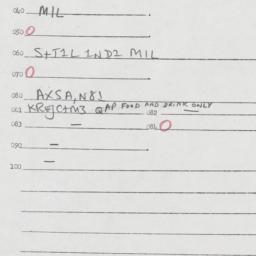 040 MIL
050 O
060 S+T1L IND2 MIL
070 O
080 AXSA, N81
061 KREJC+M3 QAP FOOD AND DRINK ONLY 082 —
083 — 084 O
090 —
100 —